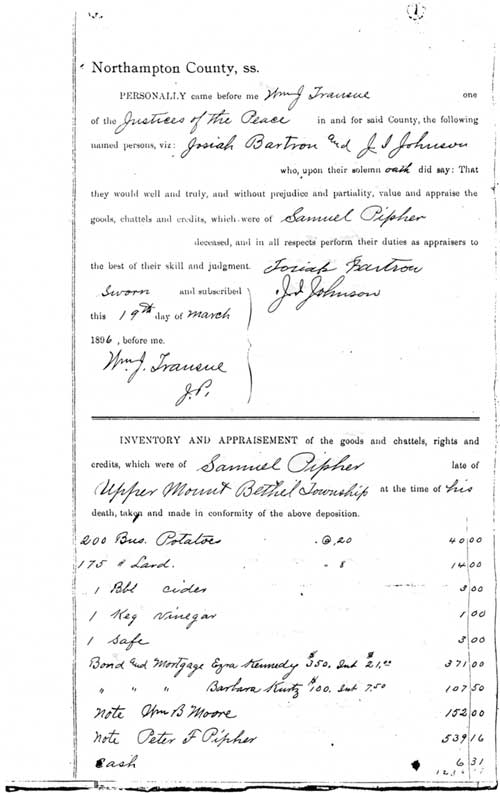 1
Northampton County, ss.
PERSONALLY came before me Wm J Transue one
of the Justices of the Peace in and for said County, the following
named persons, viz: Josiah Bartron and J I Johnson
who, upon their solemn oath did say: That
they would well and truly, and without prejudice and partiality, value and appraise the
goods, chattels and credits, which were of Samuel Pipher
deceased, and in all respects perform their duties as appraisers to
the best of their skill and judgment. Josiah Bartron
Sworn and subscribed J I Johnson
this 19th day of March
1896, before me.
Wm J. Transue
J.P.
INVENTORY AND APPRAISEMENT of the goods and chattels, rights and
credits, which were of Samuel Pipher late of
Upper Mount Bethel Township at the time of his
death, taken and made in conformity of the above deposition.
200 Bus. Potatoes @.20 40 00
175 " Lard. " 8 14 00
1 Bbl cider 3 00
1 Keg Vinegar 1 00
1 Safe 3 00
Bond and Mortgage Ezra Kennedy $350. Int $21.00 371 00
" " " Barbara Kurtz $100. Int 7.50 107 50
Note Wm B Moore 152 00
Note Peter F Pipher 539 16
Cash 6 31